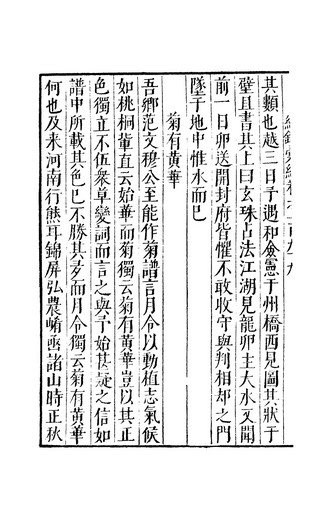 其類也越三日予遇和僉憲于州橋西見圖其狀于
壁且書其上曰玄珠占法江湖見龍卵主大水又聞
前一日卵送開封府皆懼不敢收守與判相却之門
墜于地中惟水而已
菊有黃華
吾鄉范文穆公至能作菊譜言月令以動植志氣候
如桃桐軰直云始華而菊獨云菊有黃華豈以其正
色獨立不伍衆草變詞而言之與予始甚疑之信如
譜中所載其色巳不勝其多而月令獨云菊有黃華
何也及来河南行熊耳錦屏弘農崤凾諸山時正秋